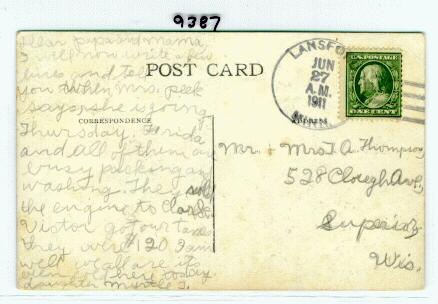 9387
Dear papa and mama.
I will now write a few
lines and tell
you when Mrs. peek
says she is going
Thursday.
and all of them are
busy packing and
washing. They sold
the engine to
Victor got our
they were $120 I am
well we all are its
here today
daughter Myrtle T.
POST CARD
CORRESPONDENCE
LANSFO
JUN
27
A.M.
1911
U.S. POSTAGE
ONE CENT
Mr. Mrs T. A. Thompson
528 Clough Ave,
Superior,
Wis.